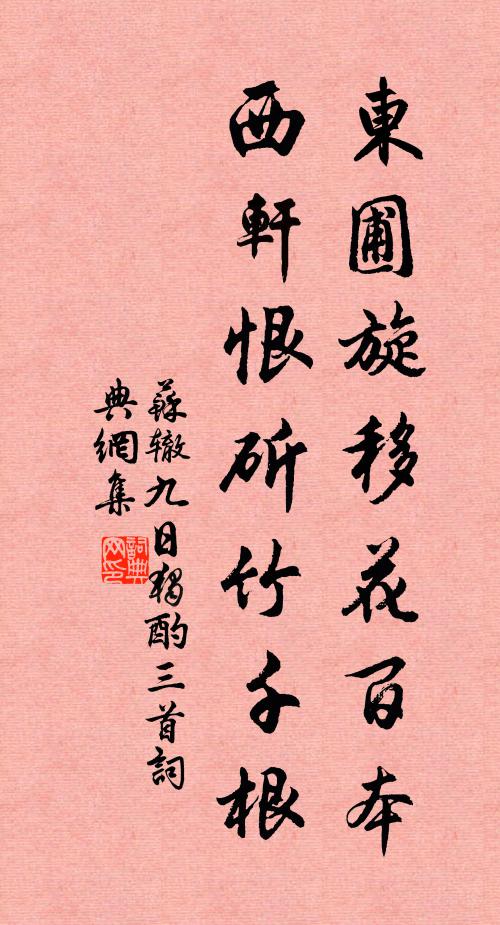 東圃旋移花百本
西軒恨斫竹千根
蘇辙九日独酌三首詞
典網集
詞典
网印